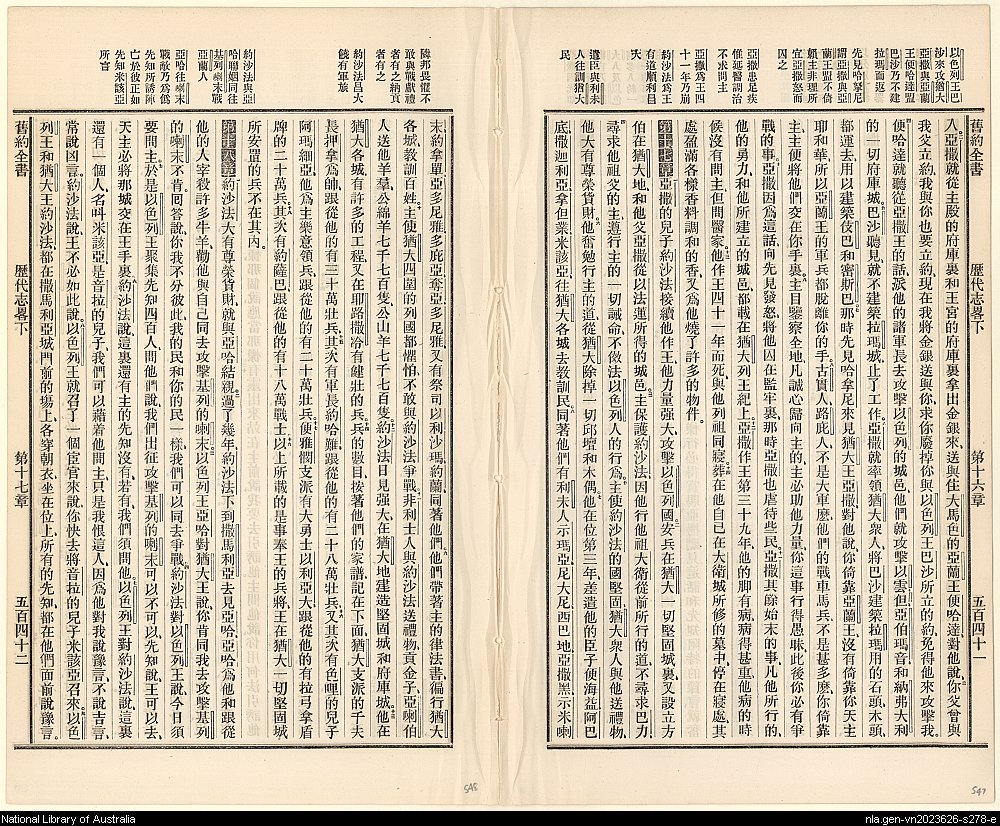 以色列王巴
沙來攻猶大
亞撒與亞蘭
王便哈達盟
巴沙乃不建
拉瑪而返
先見哈拿尼
謂亞撒與亞
蘭王盟不倚
賴主非理所
宜亞撒怒而
囚之
亞撒患足疾
惟延醫調治
不求問主
亞撒爲王四
十一年乃崩
約沙法爲王
有道順利昌
大
遣臣與利未
人往訓猶大
民
舊約全書 歷代志畧下 第十六章 五百四十一
入亞撒就從主殿的府庫裏和王宮的府庫裏拿出金銀來送與住大馬色的亞蘭王便哈達對他說你父曾與
我父立約我與你也要立約現在我將金銀送與你求你廢掉你與以色列王巴沙所立的約免得他來攻擊我
便哈達就聽從亞撒王的話派他的諸軍長去攻擊以色列的城邑他們就攻擊以雲但亞伯瑪音和納弗大利
的一切府庫城巴沙聽見就不建築拉瑪城止了工作亞撒就率領猶大衆人將巴沙建築拉瑪用的石頭木頭
都運去用以建築伎巴和密斯巴那時先見哈拿尼來見猶大王亞撒對他說你倚靠亞蘭王沒有倚靠你天主
耶和華所以亞蘭王的軍兵都脫離你的手古實人路庇人不是大軍麼他們的戰車馬兵不是甚多麼你倚靠
主主便將他們交在你手裏主目鑒察全地凡誠心歸向主的主必助他力量你這事行得愚昧此後你必有爭
戰的事亞撒因爲這話向先見發怒將他囚在監牢裏那時亞撒也虐待些民亞撒其餘始末的事凡他所行的
他的勇力和他所建立的城邑都載在猶大列王紀上亞撒作王第三十九年他的腳有病病得甚重他病的時
候沒有問主但問醫家他作王四十一年而死與他列祖同寢葬在他自己在大衛城所修的墓中停在寢處其
處盈滿各樣香料調和的香又爲他燒了許多的物件
第十七章亞撒的兒子約沙法接續他作王他力量强大攻擊以色列國安兵在猶大一切堅固城裏又設立方
伯在猶大地和他父亞撒以法蓮所得的城邑主保護約沙法因他行他祖大衛從前所行的道不尋求巴力
尋求他祖父的主遵行主的一切誡命不做法以色列人的行爲主使約沙法的國堅固猶大衆人與他送禮物
他大有尊榮貨財他奮勉行主的道從猶大除掉一切邱壇和木偶他在位第三年差遣他的臣子便海益阿巴
底撒迦利亞拿但業米該亞往猶大各城去教訓民同著他們有利未人示瑪亞尼大尼西巴地亞撒黑示米喇
隣邦畏懼不
敢與戰獻禮
者有之納貢
者有之
約沙法昌大
饒有軍旅
約沙法與亞
哈聯姻同往
基列喇末戰
亞蘭人
亞哈往喇末
戰敵乃爲僞
先知所誘陣
亡於彼正如
先知米該亞
所言
末約拿單亞多尼雅多庇亞奪亞多尼雅又有祭司以利沙瑪約蘭同著他們他們帶著主的律法書徧行猶大
各城教訓百姓主使猶大四圍的列國都懼怕不敢與約沙法爭戰非利士人與約沙法送禮物貢金子亞喇伯
人送他羊羣公綿羊七千七百隻公山羊七千七百隻約沙法日見强大在猶大地建造堅固城和府庫城他在
猶大各城有許多的工程又在耶路撒冷有健壯的兵兵的數目按著他們的家譜記在下面猶大支派的千夫
長押拿爲帥跟從他的有三十萬壯兵其次有軍長約哈難跟從他的有二十八萬壯兵又其次有色哩的兒子
阿瑪細亞他爲主樂意領兵跟從他的有二十萬壯兵便雅憫支派有大勇士以利亞大跟從他的有拉弓拿盾
牌的二十萬兵其次有約薩巴跟從他的有十八萬戰士以上所載的是事奉王的兵將王在猶大一切堅固城
所安置的兵不在其內
第十八章約沙法大有尊榮貨財就與亞哈結親過了幾年約沙法下到撒馬利亞去見亞哈亞哈爲他和跟從
他的人宰殺許多牛羊勸他與自己同去攻擊基列的喇末以色列王亞哈對猶大王說你肯同我去攻擊基列
的喇末不肯囘答說你我不分彼此我的民和你的民一樣我們可以同去爭戰約沙法對以色列王說今日須
要問主於是以色列王聚集先知四百人問他們說我們出征攻擊基列的喇末可以不可以先知說王可以去
天主必將那城交在王手裏約沙法說這裏還有主的先知沒有若有我們須問他以色列王對約沙法說這裏
還有一個人名呌米該亞是音拉的兒子我們可以藉着他問主只是我恨這人因爲他對我說豫言不說吉言
常說凶言約沙法說王不必如此說以色列王就召了一個宦官來說你快去將音拉的兒子米該亞召來以色
列王和猶大王約沙法都在撒馬利亞城門前的場上各穿朝衣坐在位上所有的先知都在他們面前說豫言
舊約全書 歷代志畧下 第十七章 五百四十二
548
547
National Library of Australia
nla.gen-vn2023626-s278-e